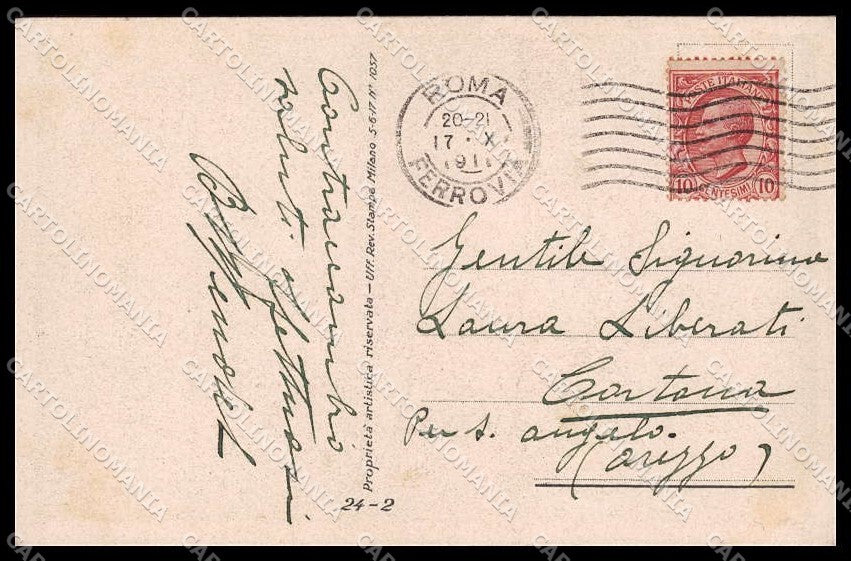 Contraccambio
saluti affettuosi
Proprietà artistica riservata — Uff. Rev. Stampa Milano 5-6-17 N° 1057
24-2
ROMA
20-21
17 · X
1911
FERROVIA
POSTE ITALIANE
10 CENTESIMI 10
Gentile Signorina
Laura Liberati
Cortona
Per S. Angelo
(Arezzo)
CARTOLINOMANIA